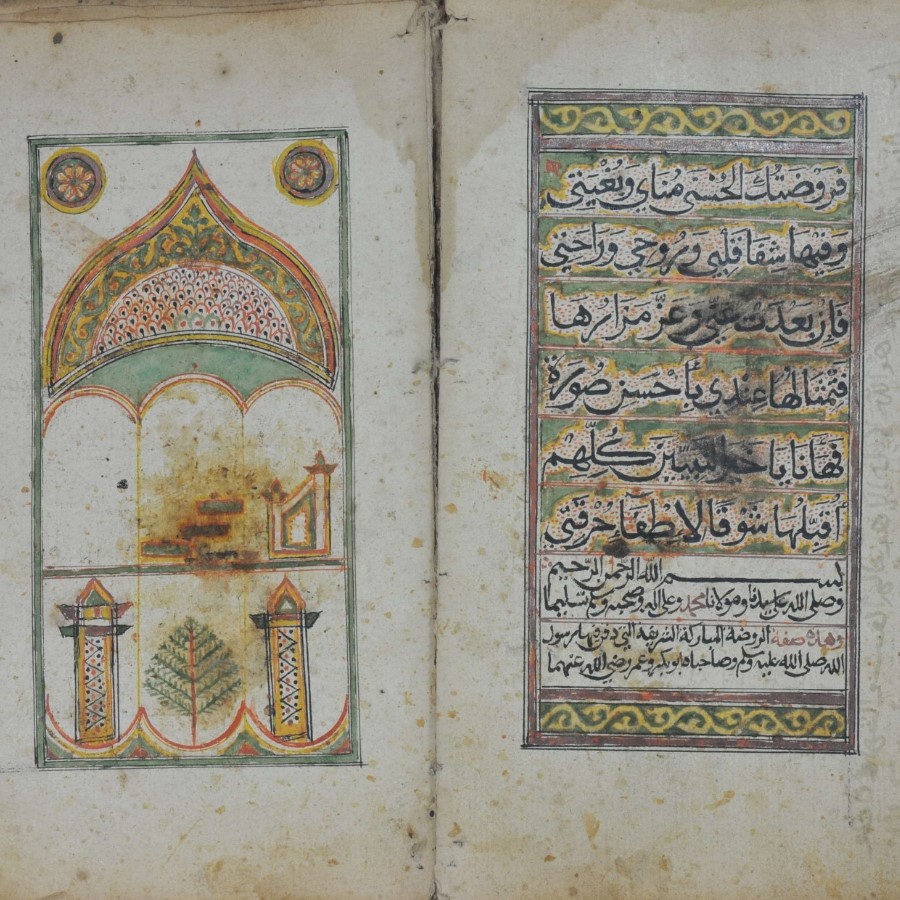 فروضتك الحسنى مناي وبغيتي
وفيها شفا قلبي وروحي وراحتي
فإن بعدت عني وعز مزارها
فتمثالها عندي بأحسن صورة
فها أنا يا خير النبيين كلهم
أقبلها شوقا لإطفاء حرقتي
بسم الله الرحمن الرحيم
وصلى الله على سيدنا ومولانا محمد وعلى آله وصحبه وسلم تسليما
وهذه صفة الروضة المباركة الشريفة التي دفن بها رسول
الله صلى الله عليه وسلم وصاحباه أبو بكر وعمر رضي الله عنهما